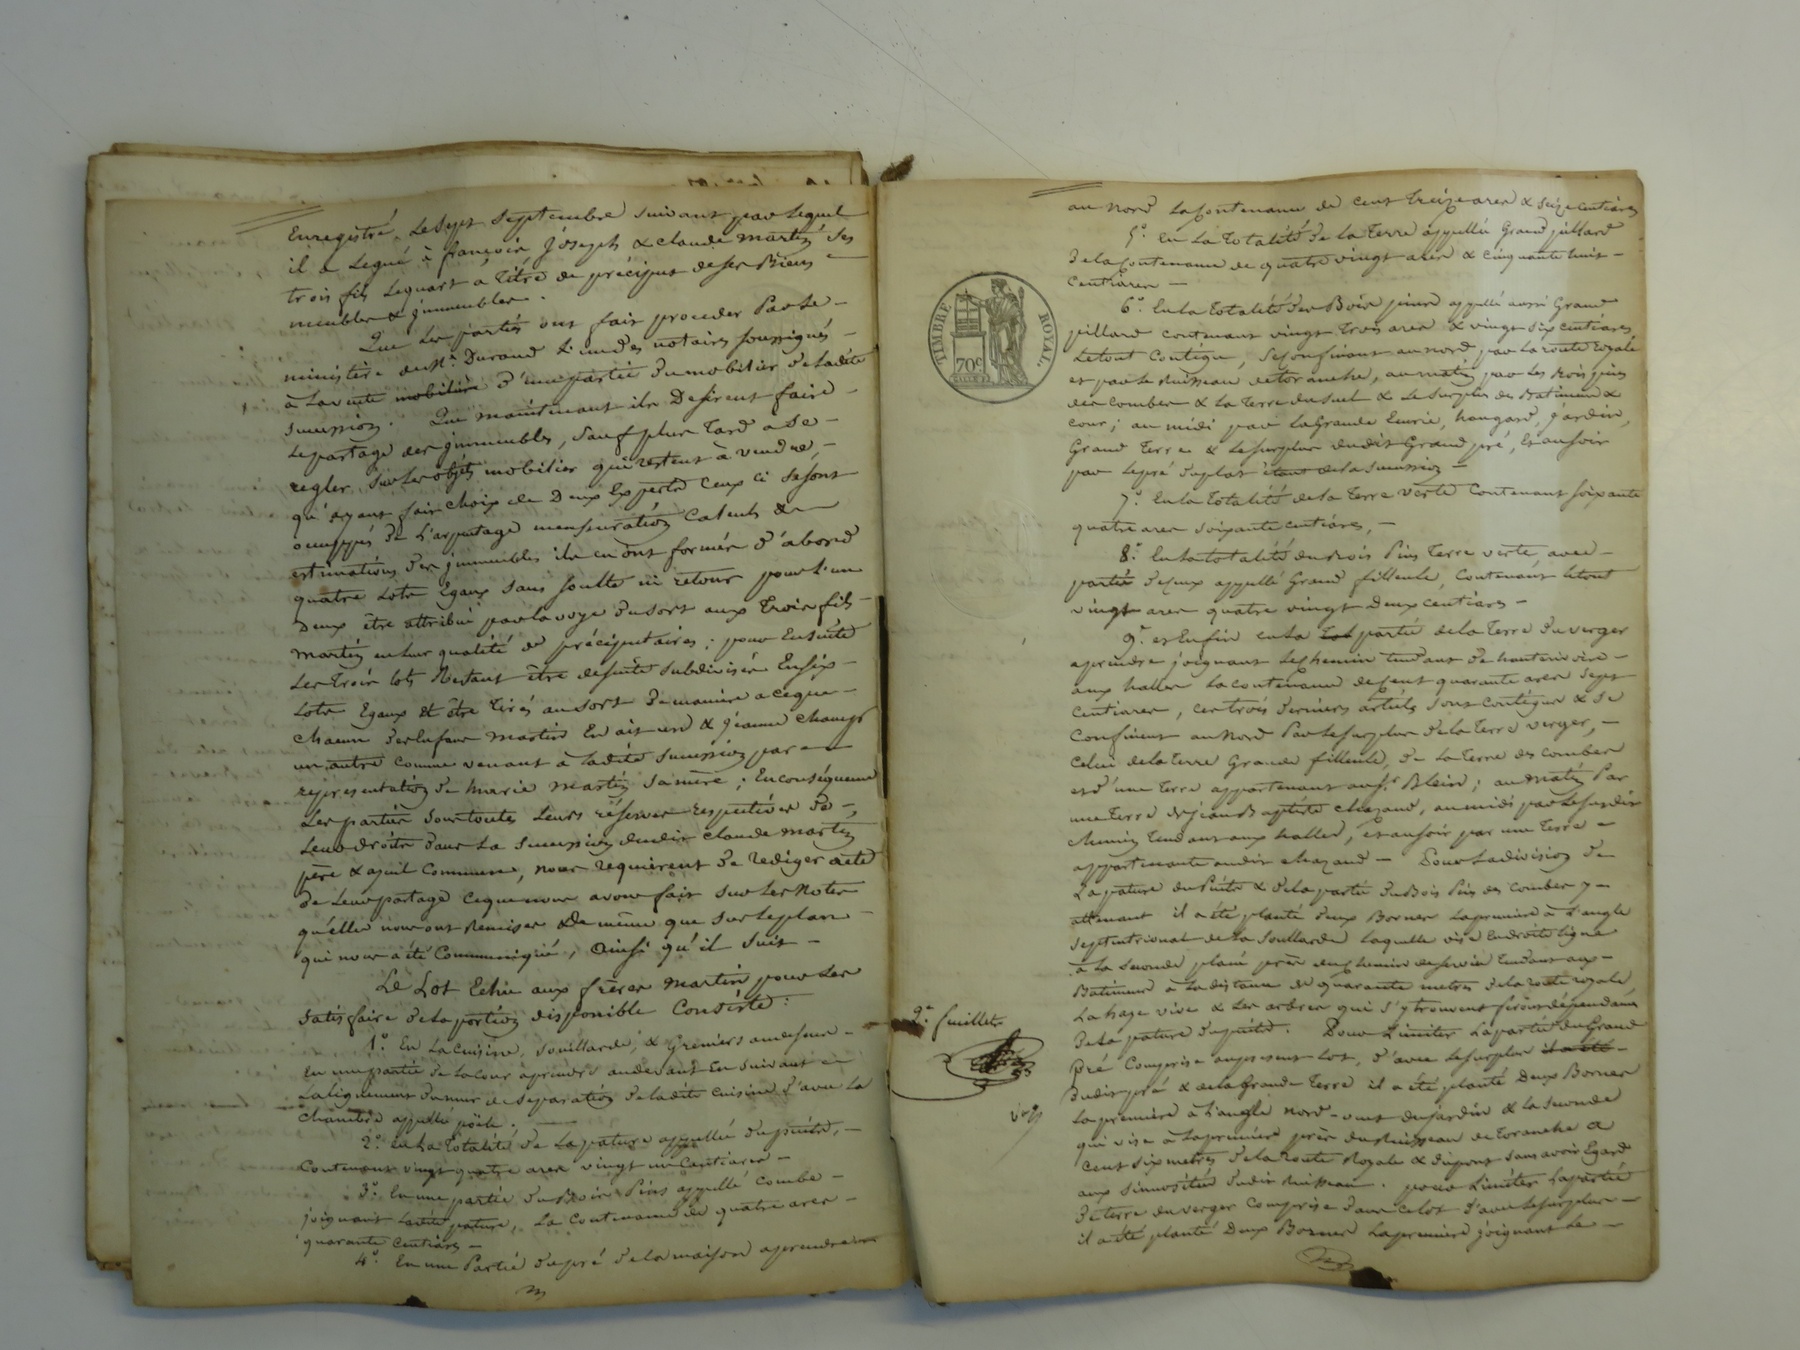 Enregistré, Le Sept Septembre suivant par Lequel
il a Legué à françois Joseph & claude martin Ses
trois fils Lequart a Titre de précipus de Ses Biens
meubles & jmmeubles.
Que Les parties ont fait proceder Par Le
ministère de Me. Durand L'un des notaires soussignés
à La vente mobilière d'une partie du mobilier de Ladite
Succession. Que maintenant ils Desirent faire
Le partage des jmmeubles, Sauf plus Tard a Se
regler Sur Les objets mobilier qui restent à vendre,
qu'ayant fait choix de Deux Experts Ceux ci Se Sont
occuppés de L'arpentage mensuration Calculs &
estimations des jmmeubles ils en ont formés d'abord
quatre Lots Egaux Sans Soulte ni retour pour L'un
Deux être attribué par La voye du Sort aux Trois fils
Martin en Leur qualité de préciputaires; pour Ensuite
Les Trois Lots Restant être desuite Subdivisés En Six
Lots Egaux Et être Tirés au Sort De maniere a ceque
chacun des Enfans Martin En ait un & jeanne champs
un autre comme venant à Ladite Succession par
représentation de marie martin Sa mère; En conséquence
Les parties Sous toutes Leurs réserves respectives de
Leurs droits dans La Succession dudit claude martin
père & ayeul Commun, nous requièrent de rediger acte
de Leur partage ceque nous avons fait Sur Les Notes
qu'elles nous ont Remises & De même que Sur Le plan
qui nous a été Communiqué, Ainsi qu'il Suit
Le Lot Echu aux frères Martin pour Les
Satisfaire de La portion disponible Consiste:
1o. En La cuisine, Souillarde, & Greniers au dessus
En une partie de La cour aprendre au devant En Suivant
Lalignement du mur de Séparation de Ladite cuisine d'avec La
chambre appellé poële.
2o. En La Totalité de La pature appellée du puits,
Contenant vingt quatre ares vingt un Centiares
3o. En une partie du Bois Pins appellé combe
joignant Ladite pature, La Contenance de quatre ares
quarante centiares
4o. En une Partie du pré de La maison aprendre
au Nord La Contenance de cent Treize ares & Seize centiares
5o. En La Totalité de La Terre appellée Grand pillard
de La Contenance de quatre vingt ares & cinquante huit
Centiares
6o. En La Totalité des Bois pins appellé aussi Grand
pillard contenant vingt trois ares & vingt Six centiares
Le tout Contigu, Se Confinant au nord par La route Royale
et par Le Ruisseau de Toranche, au matin par Les Bois pins
des combes & La Terre du Suel & Le Surplus des Batimens &
cour; au midi par La Grande Ecurie, hangard, jardin,
Grand Terre & Le Surplus du dit Grand pré, Et au Soir
par Le pré du plat étant de La Succession
7o. En La Totalité de La Terre verte Contenant Soixante
quatre ares Soixante centiares,
8o. En La totalité du Bois Pins Terre verte avec
partie de ceux appellé Grand filleule, Contenant Le tout
vingt ares quatre vingt Deux centiares
9o. et Enfin en La Tot partie de La Terre du verger
aprendre joignant Le chemin Tendant de hauterivoire
aux halles La contenance de Cent quarante ares Sept
centiares, ces trois derniers articles Sont Contigus & Se
Confinent au Nord Par Le Surplus de La Terre verger,
celui de La Terre Grande filleule, de La Terre des combes
et d'une Terre appartenant au Sr. Blein; au Matin Par
une Terre de jean Baptiste chazaud, au midi par Le Susdit
chemin Tendant aux halles, et au Soir par une Terre
appartenante audit chazaud – Pour La division de
La pature du Puits & de La partie du Bois Pins des combes y
attenant il a été planté deux Bornes La premiere à L'angle
Septentrional de La Souillarde Laquelle vise En droite Ligne
à La Seconde plant près du chemin de Servis Tendant aux
Batimens à La distance de quarante metres de La route royale
La haye vive & Les arbres qui S'y trouvent Seront dépendans
de La pature du puits. Pour Limiter La partie du Grand
Pré Comprise au présent Lot, d'avec Le Surplus il a été
Dudit pré & de La Grande Terre il a été planté Deux Bornes
La premiere à L'angle Nord-ouest du jardin & La Seconde
qui vise à La premiere près du Ruisseau de Toranche a
cent Six metres de La route Royale & du pont Sans avoir Egard
aux Sinuosités dudit Ruisseau. pour Limiter La partie
de terre du verger Comprise dans ce Lot d'avec Le Surplus
il a été planté Deux Bornes La premiere joignant Le
TIMBRE ROYAL
70c
2e. feuillet